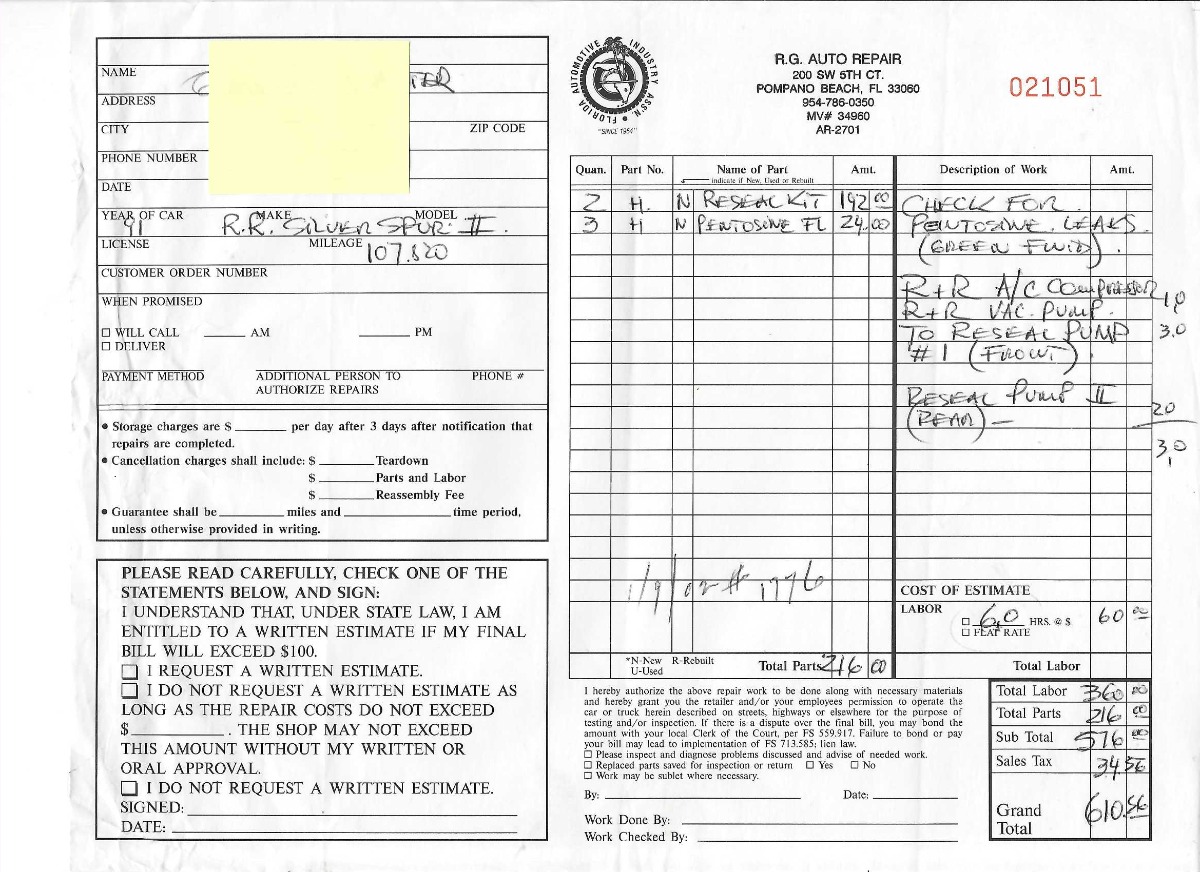 NAME TER
ADDRESS
CITY ZIP CODE
PHONE NUMBER
DATE
YEAR OF CAR MAKE MODEL
91 R.R. SILVER SPUR II.
LICENSE MILEAGE 107.820
CUSTOMER ORDER NUMBER
WHEN PROMISED
WILL CALL AM PM
DELIVER
PAYMENT METHOD ADDITIONAL PERSON TO AUTHORIZE REPAIRS PHONE #
• Storage charges are $ per day after 3 days after notification that
repairs are completed.
• Cancellation charges shall include: $ Teardown
$ Parts and Labor
$ Reassembly Fee
• Guarantee shall be miles and time period,
unless otherwise provided in writing.
PLEASE READ CAREFULLY, CHECK ONE OF THE
STATEMENTS BELOW, AND SIGN:
I UNDERSTAND THAT, UNDER STATE LAW, I AM
ENTITLED TO A WRITTEN ESTIMATE IF MY FINAL
BILL WILL EXCEED $100.
I REQUEST A WRITTEN ESTIMATE.
I DO NOT REQUEST A WRITTEN ESTIMATE AS
LONG AS THE REPAIR COSTS DO NOT EXCEED
$ . THE SHOP MAY NOT EXCEED
THIS AMOUNT WITHOUT MY WRITTEN OR
ORAL APPROVAL.
I DO NOT REQUEST A WRITTEN ESTIMATE.
SIGNED:
DATE:
FLORIDA AUTOMOTIVE INDUSTRY ASSN.
"SINCE 1954"
R.G. AUTO REPAIR
200 SW 5TH CT.
POMPANO BEACH, FL 33060
954-786-0350
MV# 34960
AR-2701
021051
Quan. Part No. Name of Part Amt. Description of Work Amt.
indicate if New, Used or Rebuilt
2 H. N RESEAL KIT 192 00 CHECK FOR
3 H N PENTOSINE FL 24.00 PENTOSINE LEAKS.
(GREEN FLUID).
R+R A/C COMPRESSOR 1,0
R+R VAC. PUMP.
TO RESEAL PUMP 3.0
#1 (FRONT).
RESEAL PUMP II 20
(REAR) —
3,0
1/9/02 # 1776
COST OF ESTIMATE
LABOR
6,0 HRS. @ $ 60 00
FLAT RATE
*N-New R-Rebuilt
U-Used
Total Parts 216 00 Total Labor
I hereby authorize the above repair work to be done along with necessary materials
and hereby grant you the retailer and/or your employees permission to operate the
car or truck herein described on streets, highways or elsewhere for the purpose of
testing and/or inspection. If there is a dispute over the final bill, you may bond the
amount with your local Clerk of the Court, per FS 559.917. Failure to bond or pay
your bill may lead to implementation of FS 713.585; lien law.
Please inspect and diagnose problems discussed and advise of needed work.
Replaced parts saved for inspection or return Yes No
Work may be sublet where necessary.
By: Date:
Work Done By:
Work Checked By:
Total Labor 360 00
Total Parts 216 00
Sub Total 576 00
Sales Tax 34 56
Grand Total 610.56